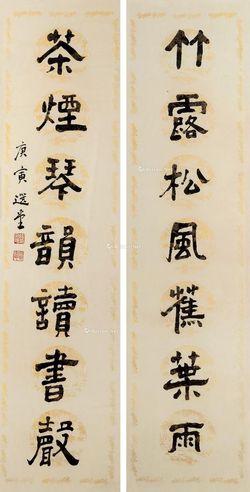 竹露松風蕉葉雨
茶煙琴韻讀書聲
庚寅 選堂